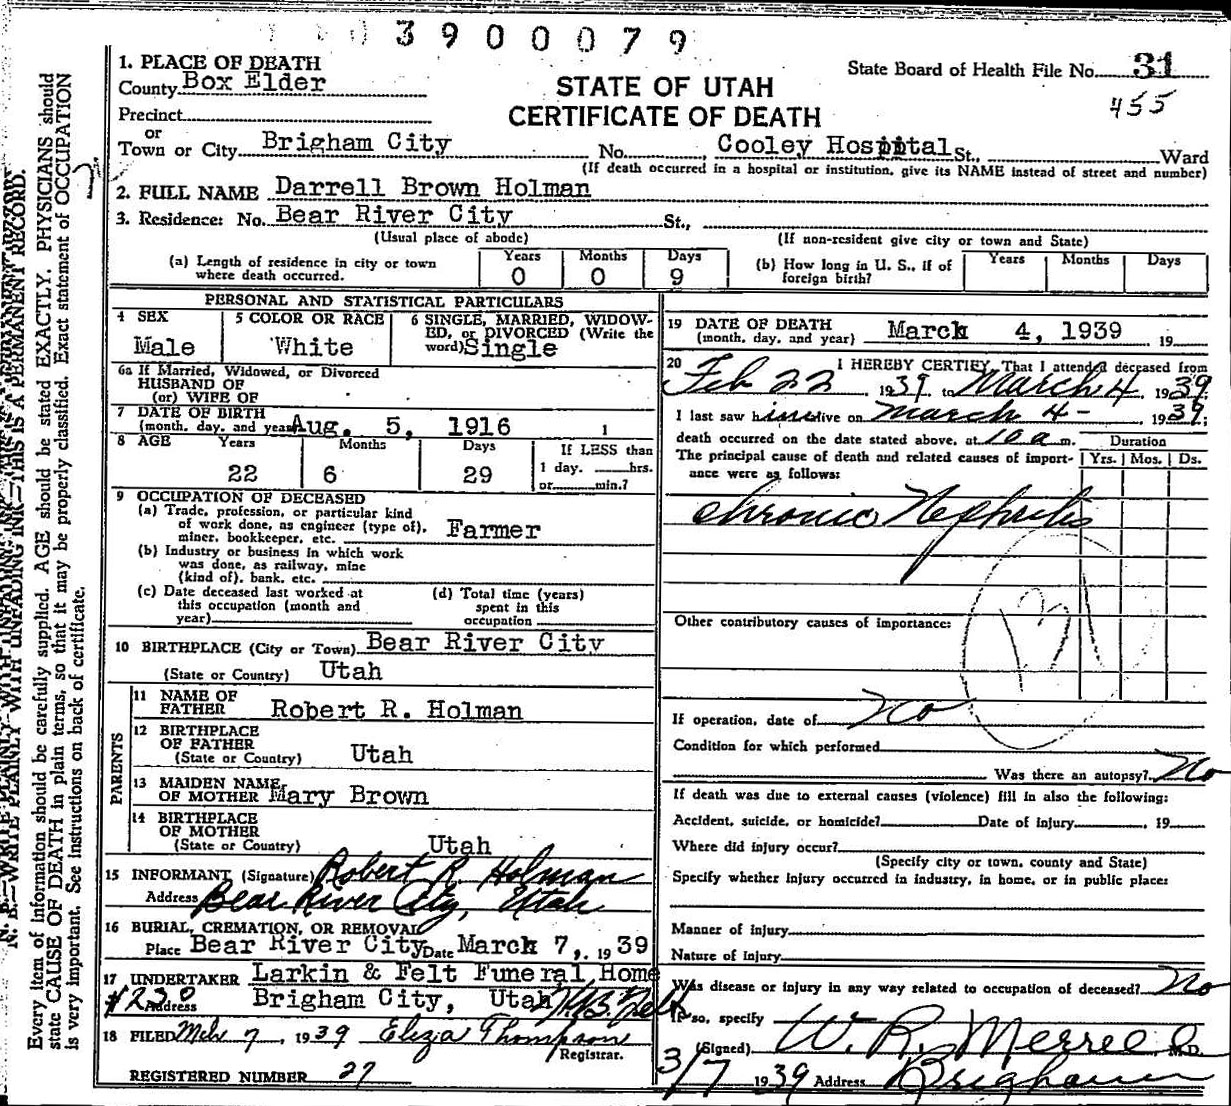 3900079
1. PLACE OF DEATH
County Box Elder
STATE OF UTAH
CERTIFICATE OF DEATH
State Board of Health File No. 31
455
Precinct
or
Town or City Brigham City No. , Cooley Hospital St., Ward
(If death occurred in a hospital or institution, give its NAME instead of street and number)
2. FULL NAME Darrell Brown Holman
3. Residence: No. Bear River City St.,
(Usual place of abode) (If non-resident give city or town and State)
(a) Length of residence in city or town where death occurred. Years 0 Months 0 Days 9
(b) How long in U. S., if of foreign birth? Years Months Days
PERSONAL AND STATISTICAL PARTICULARS
4 SEX Male
5 COLOR OR RACE White
6 SINGLE, MARRIED, WIDOWED, or DIVORCED (Write the word) Single
6a If Married, Widowed, or Divorced
HUSBAND OF
(or) WIFE OF
7 DATE OF BIRTH
(month, day, and year) Aug. 5, 1916
8 AGE Years Months Days If LESS than
22 6 29 1 day, hrs.
or min.?
9 OCCUPATION OF DECEASED
(a) Trade, profession, or particular kind
of work done, as engineer (type of),
miner, bookkeeper, etc. Farmer
(b) Industry or business in which work
was done, as railway, mine
(kind of), bank, etc.
(c) Date deceased last worked at
this occupation (month and
year)
(d) Total time (years)
spent in this
occupation
10 BIRTHPLACE (City or Town) Bear River City
(State or Country) Utah
PARENTS
11 NAME OF
FATHER Robert R. Holman
12 BIRTHPLACE
OF FATHER
(State or Country) Utah
13 MAIDEN NAME
OF MOTHER Mary Brown
14 BIRTHPLACE
OF MOTHER
(State or Country) Utah
15 INFORMANT (Signature) Robert R. Holman
Address Bear River City, Utah
16 BURIAL, CREMATION, OR REMOVAL
Place Bear River City Date March 7, 1939
17 UNDERTAKER Larkin & Felt Funeral Home
#230 Address Brigham City, Utah
18 FILED Mch 7, 1939 Eliza Thompson
Registrar.
REGISTERED NUMBER 27
19 DATE OF DEATH
(month, day, and year) March 4, 1939 19
20 I HEREBY CERTIFY, That I attended deceased from
Feb 22 1939 to March 4 1939
I last saw him alive on March 4- 1939;
death occurred on the date stated above, at 10 a m.
Duration
Yrs. Mos. Ds.
The principal cause of death and related causes of importance were as follows:
Chronic Nephritis
131
Other contributory causes of importance:
If operation, date of No
Condition for which performed
Was there an autopsy? No
If death was due to external causes (violence) fill in also the following:
Accident, suicide, or homicide? Date of injury , 19
Where did injury occur?
(Specify city or town, county and State)
Specify whether injury occurred in industry, in home, or in public place:
Manner of injury
Nature of injury
Was disease or injury in any way related to occupation of deceased? No
If so, specify
(Signed) W. R. Merrell M.D.
3/7 1939 Address Brigham
N. B.—WRITE PLAINLY WITH UNFADING INK—THIS IS A PERMANENT RECORD.
Every item of information should be carefully supplied. AGE should be stated EXACTLY. PHYSICIANS should
state CAUSE OF DEATH in plain terms, so that it may be properly classified. Exact statement of OCCUPATION
is very important. See instructions on back of certificate.